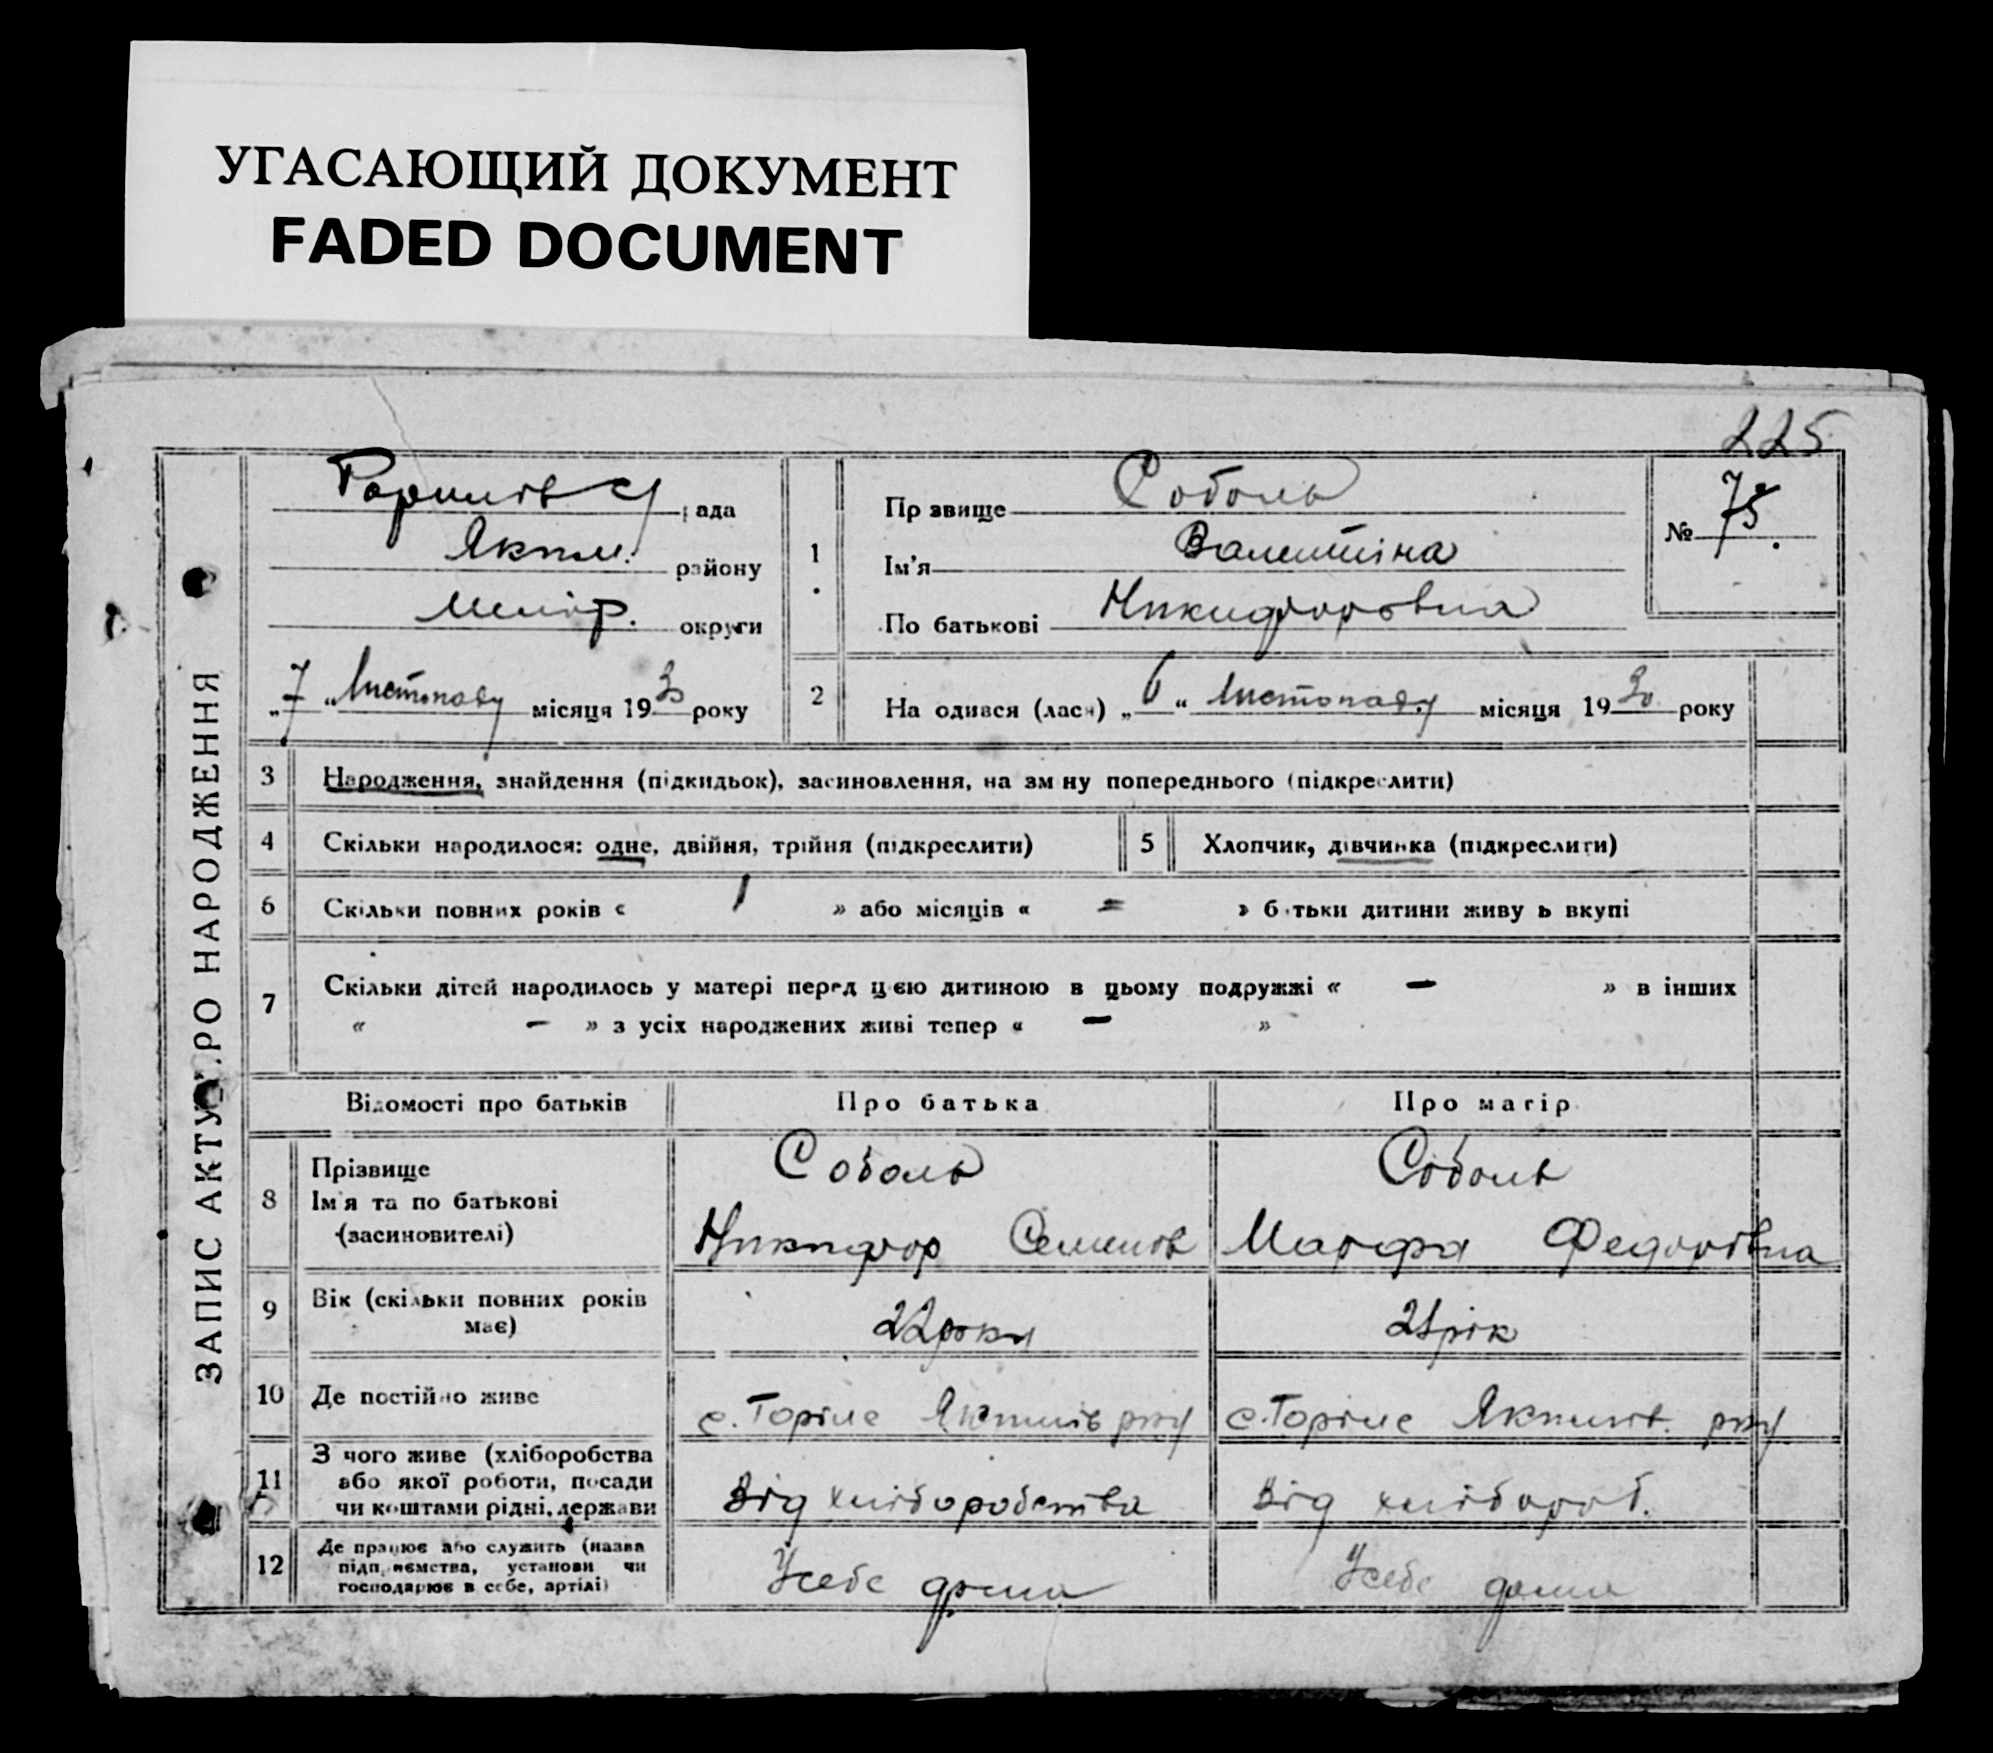 УГАСАЮЩИЙ ДОКУМЕНТ
FADED DOCUMENT
225
ЗАПИС АКТУ ПРО НАРОДЖЕННЯ
рада
Яким. району
Меліт. округи
„7“ Листопаду місяця 1930 року
1
Прізвище Соболь
Ім'я Валентіна
По батькові Никифоровна
№ 75.
2 На одився (лася) „6“ Листопаду місяця 1930 року
3 Народження, знайдення (підкидьок), засиновлення, на зм ну попереднього (підкреслити)
4 Скільки народилося: одне, двійня, трійня (підкреслити)
5 Хлопчик, дівчинка (підкреслити)
6 Скільки повних років « 1 » або місяців « = » б тьки дитини живу ь вкупі
7 Скільки дітей народилось у матері перед цією дитиною в цьому подружжі « — » в інших
« — » з усіх народжених живі тепер « — »
Відомості про батьків Про батька Про матір
8 Прізвище
Ім'я та по батькові
(засиновителі)
Соболь
Никифор Семенов
Соболь
Марфа Федоровна
9 Вік (скільки повних років
має)
22 роки
21 рік
10 Де постійно живе
с. Горіле Якимів р-ну
с. Горіле Якимів. р-ну
11 З чого живе (хліборобства
або якої роботи, посади
чи коштами рідні, держави
Від хліборобства
Від хлібороб.
12 Де працює або служить (назва
підприємства, установи чи
господарює в себе, артілі)
У себе дома
У себе дома